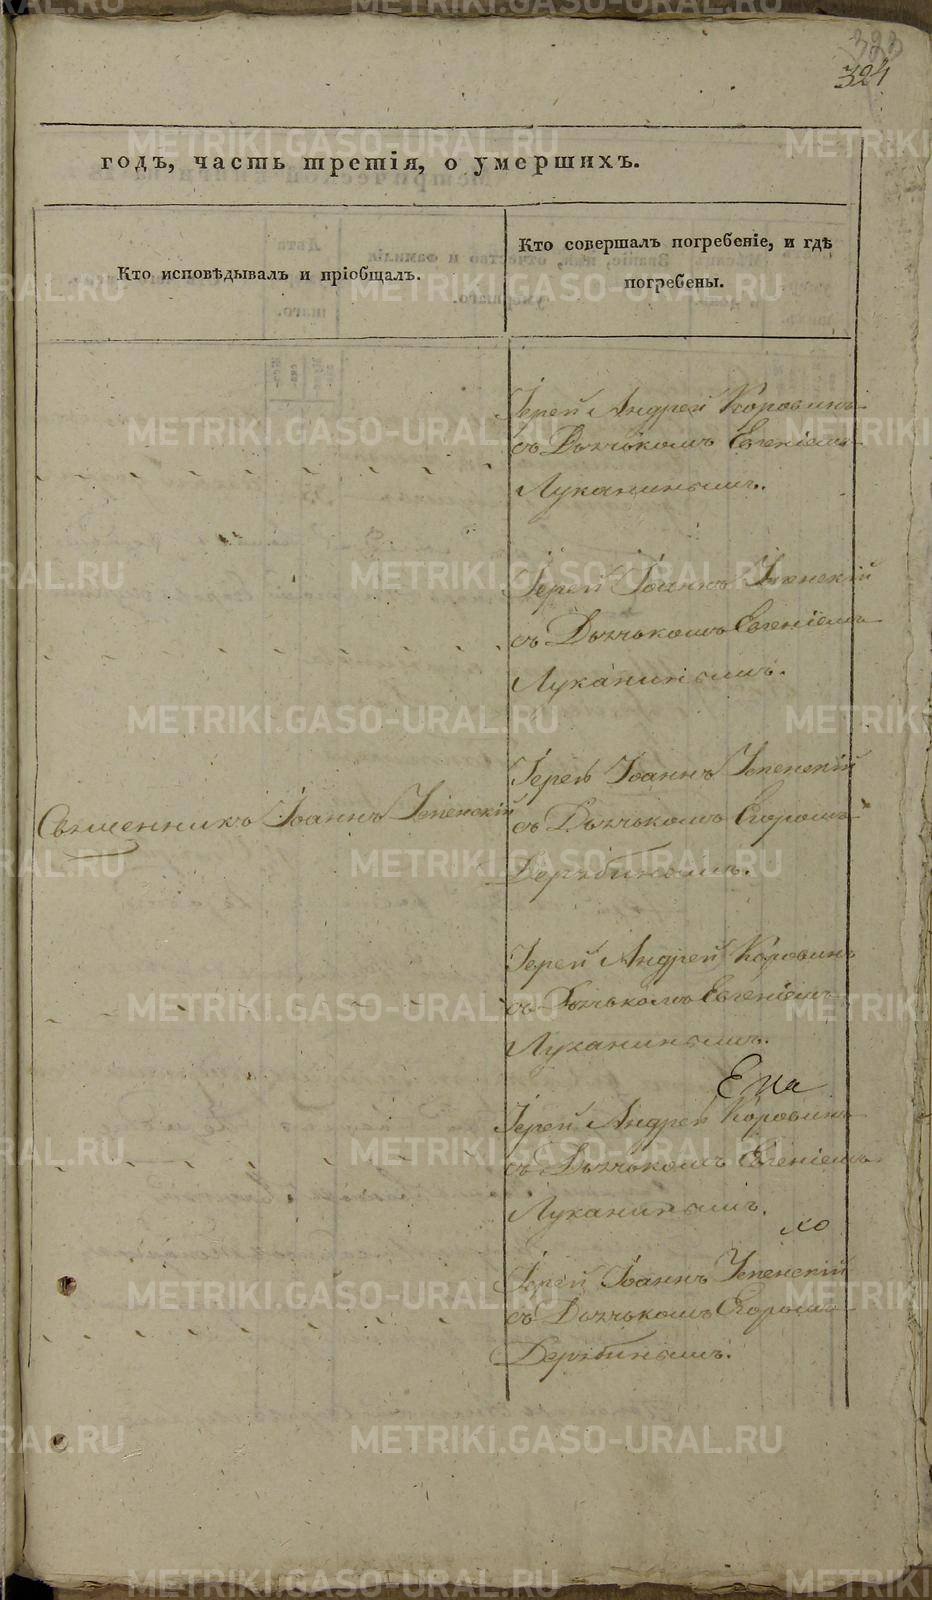 323
324
годъ, часть третія, о умершихъ.
Кто исповѣдывалъ и пріобщалъ.
Кто совершалъ погребеніе, и гдѣ
погребены.
Іерей Андрей Коровинъ
съ Дьячькомъ Евгеніемъ
Луканинымъ.
Іерей Іоаннъ Успенскій
съ Дьячькомъ Евгеніемъ
Луканинымъ.
Священникъ Іоаннъ Успенскій
Іерей Іоаннъ Успенскій
съ Дьячькомъ Егоромъ
Дерябинымъ.
Іерей Андрей Коровинъ
съ Дьячькомъ Евгеніемъ
Луканинымъ.
Іерей Андрей Коровинъ
съ Дьячькомъ Евгеніемъ
Луканинымъ.
Іерей Іоаннъ Успенскій
съ Дьячькомъ Егоромъ
Дерябинымъ.
METRIKI.GASO-URAL.RU